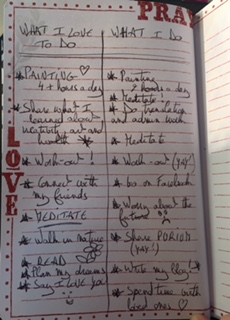 PRAY
LOVE
WHAT I LOVE
TO DO
* PAINTING ♡
4 + hours a day
* Share what I
learned about
creativity, art and
health
* Work-out!
* Connect with
my friends
* MEDITATE
* Walk in nature
* READ
* Plan my dreams
* Say I love you
WHAT I DO
* Painting
2 hours a day
* Meditate
* Do translation
and admin work
* Meditate
* Work-out (YAY!)
* Go on Facebook
* Worry about the
future
* Share PORIUM
(YAY!)
* Write my blog
* Spend time with
loved ones ♡